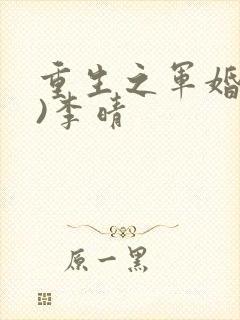 重生之军婚
)李晴
原一黑